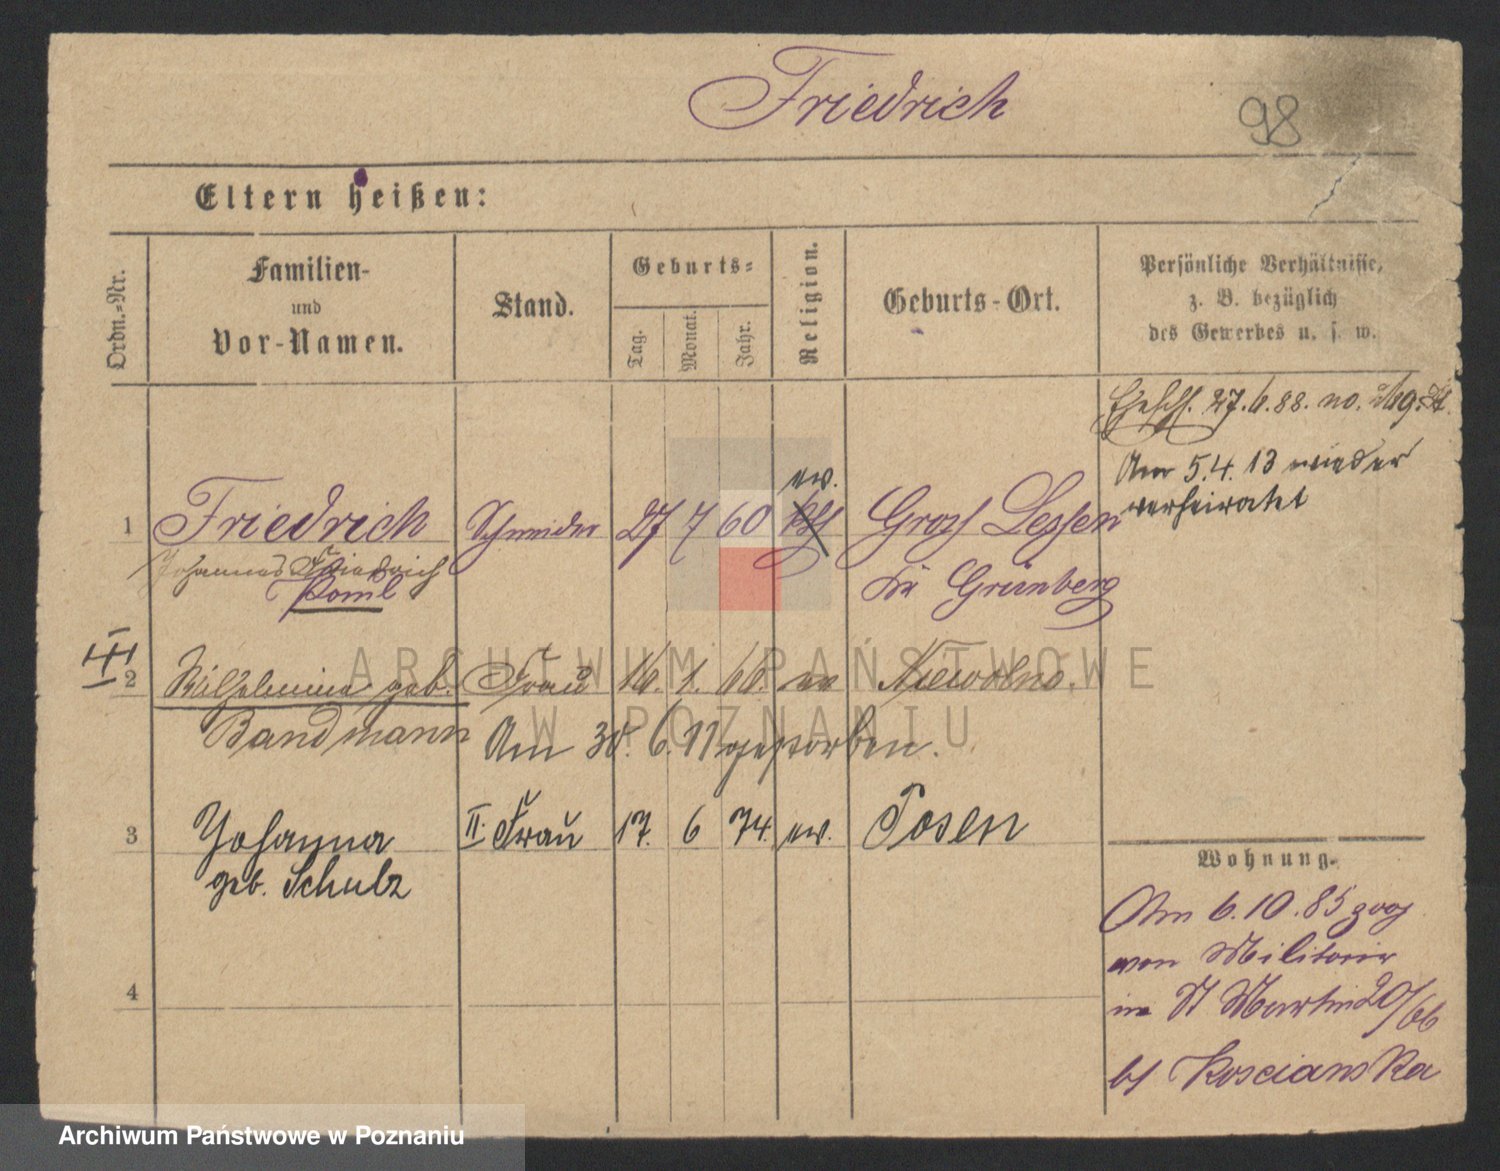 Friedrich
98
Eltern heißen:
Ordn.-Nr.
Familien-
und
Vor-Namen.
Stand.
Geburts-
Tag.
Monat.
Jahr.
Religion.
Geburts-Ort.
Persönliche Verhältnisse,
z. B. bezüglich
des Gewerbes u. s. w.
Eheschl. 27.6.88. no.
Am 5.4.13 wieder
verheiratet
ev.
1 Friedrich Schneider 27 7 60 kth Groß Lessen
Johannes Friedrich
Paul
Kr Grünberg
2 Wilhelmine geb. Frau 16. 1. 60. ev Niewolno.
Bandmann Am 30.6.11 gestorben.
3 Johanna II. Frau 17. 6 74. ev. Posen
geb. Schulz
4
Wohnung.
Am 6.10.85 zog
von Militair
in St Martin 20/66
b/ Koscianska
ARCHIWUM PAŃSTWOWE
W POZNANIU
Archiwum Państwowe w Poznaniu